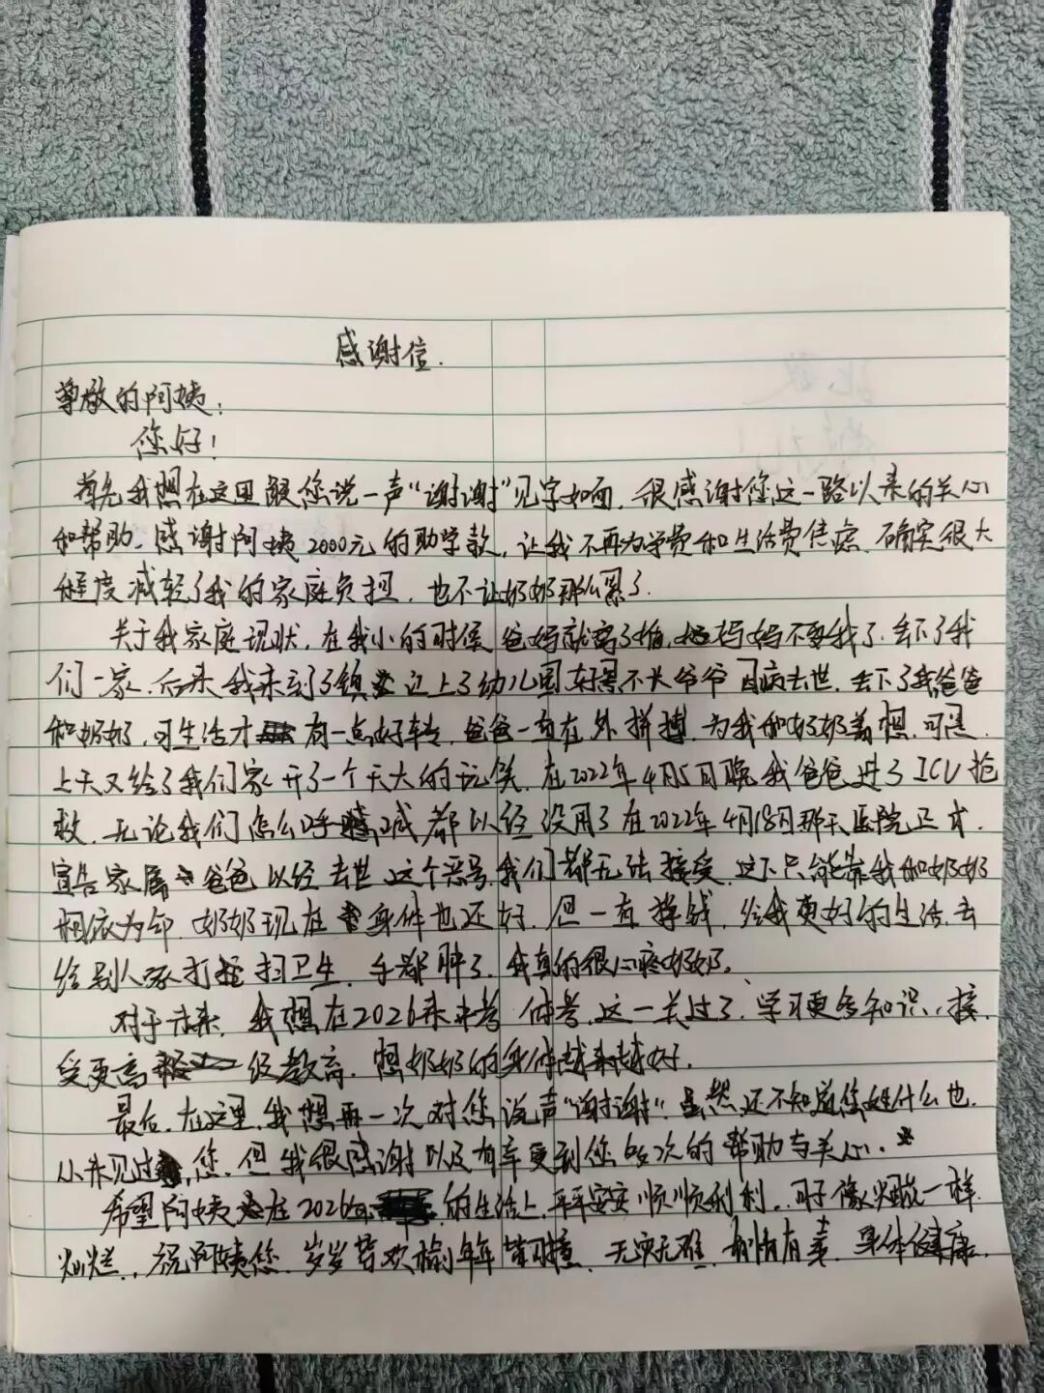 感谢信.
尊敬的阿姨:
您好!
首先我想在这里跟您说一声“谢谢”见字如面.很感谢您这一路以来的关心
和帮助.感谢阿姨2000元的助学款,让我不再为学费和生活费焦虑.确实很大
程度减轻了我的家庭负担.也不让奶奶那么累了.
关于我家庭现状.在我小的时候爸妈就离了婚.妈妈不要我了.丢下了我
们一家.后来我来到了镇边上了幼儿园好景不长爷爷因病去世.丢下了我爸爸
和奶奶,可生活才有一点好转.爸爸一直在外拼搏.为我和奶奶着想.可是.
上天又给了我们家开了一个天大的玩笑.在2022年4月5日晚我爸爸进了ICU抢
救.无论我们怎么呼喊都以经没用了在2022年4月18日那天医院正式.
宣告家属爸爸以经去世这个恶号.我们都无法接受.这下只能靠我和奶奶
相依为命.奶奶现在身体也还好.但一直挣钱.给我更好的生活.去
给别人家打扫卫生.手都肿了.我真的很心疼奶奶.
对于未来.我想在2026来中考体考.这一关过了.学习更多知识..接.
受更高级教育.想奶奶的身体越来越好.
最后.在这里.我想再一次对您说声“谢谢”.虽然还不知道您姓什么也.
从未见过您.但我很感谢以及有幸更到您的次的帮助与关心.
希望阿姨在2026年的生活上.平平安安顺顺利利.日子像烟花一样
灿烂..祝阿姨您.岁岁皆欢愉年年皆.无灾无难.身体健康.